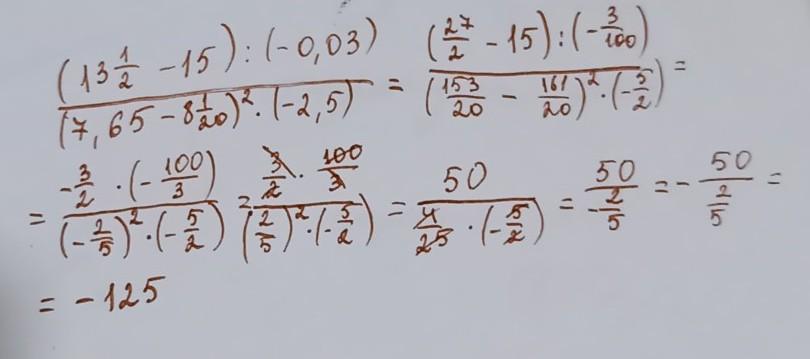 ((13 1/2 - 15) : (-0,03)) / ((7,65 - 8 1/20)² · (-2,5)) = ((27/2 - 15) : (-3/100)) / ((153/20 - 161/20)² · (-5/2)) =
= (-3/2 · (-100/3)) / ((-2/5)² · (-5/2)) = (3/2 · 100/3) / ((2/5)² · (-5/2)) = 50 / (4/25 · (-5/2)) = 50 / (-2/5) = - 50 / (2/5) =
= -125